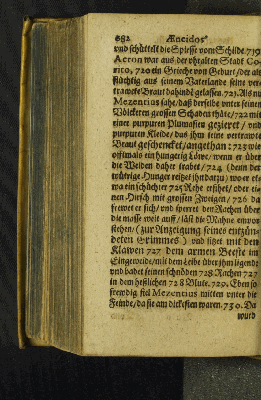 682 Æneidos
und schüttelt die Spiesse vom Schilde. 719
Acron war aus der uhralten Stadt Co-
rito, 720 ein Grieche von Geburt / der als
flüchtig aus seinem Vaterlande seine ver-
trawete Braut dahinde gelassen. 721 Als nu
Mezentius sahe / daß derselbe unter seinen
Völckeren grossen Schaden thäte / 722 mit
einer purpuren Plumassen gezieret / und
purpuren Kleide / das ihm seine vertrawte
Braut geschencket / angethan: 723 wie
offtmals ein hungerig Löwe / wenn er über
die Weiden daher trabet / 724 (denn der
wütrige Hunger reitzet ihn darzu) wo er et-
wa ein schüchter 725 Rehe ersihet / oder ei-
nen Hirsch mit grossen Zweigen / 726 da
frewet er sich / und sperret den Rachen über
die masse weit auff / läst die Mahne empor
stehen / (zur Anzeigung seines entzün-
deten Grimmes) und sitzet mit den
Klawen 727 dem armen Beeste im
Eingeweide / mit dem Leibe über ihm ligend
und badet seinen schnöden 728 Rachen 727
in dem heßlichen 728 Blute. 729. Eben so
frewdig fiel Mezentius mitten unter die
Feinde / da sie am dickesten waren. 730. Da
wurd